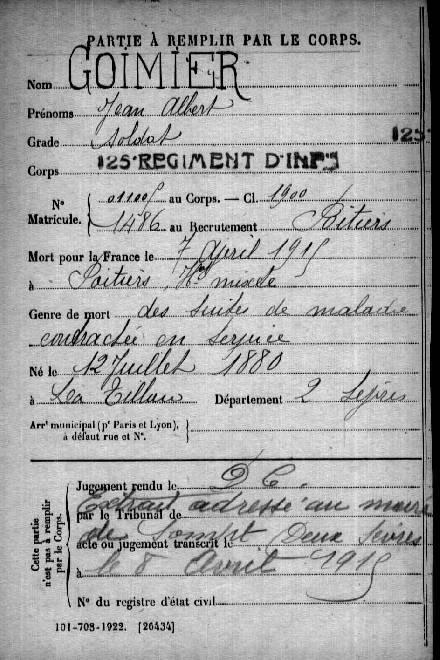 PARTIE À REMPLIR PAR LE CORPS.
Nom GOIMIER
Prénoms Jean Albert
Grade soldat 125
Corps 125e REGIMENT D'INFie
No Matricule. 011005 au Corps. — Cl. 1900
1486 au Recrutement Poitiers
Mort pour la France le 7 Avril 1915
à Poitiers, Hal mixte
Genre de mort des suites de maladie
contractée en service
Né le 12 Juillet 1880
à La Tillou Département 2 Sèvres
Arrt municipal (pr Paris et Lyon), à défaut rue et No.
Cette partie n'est pas à remplir par le Corps.
Jugement rendu le D C.
par le Tribunal de Extrait adressé au maire
acte ou jugement transcrit le de Deux Sèvres
à le 8 Avril 1915
No du registre d'état civil
101-708-1922. [26434]